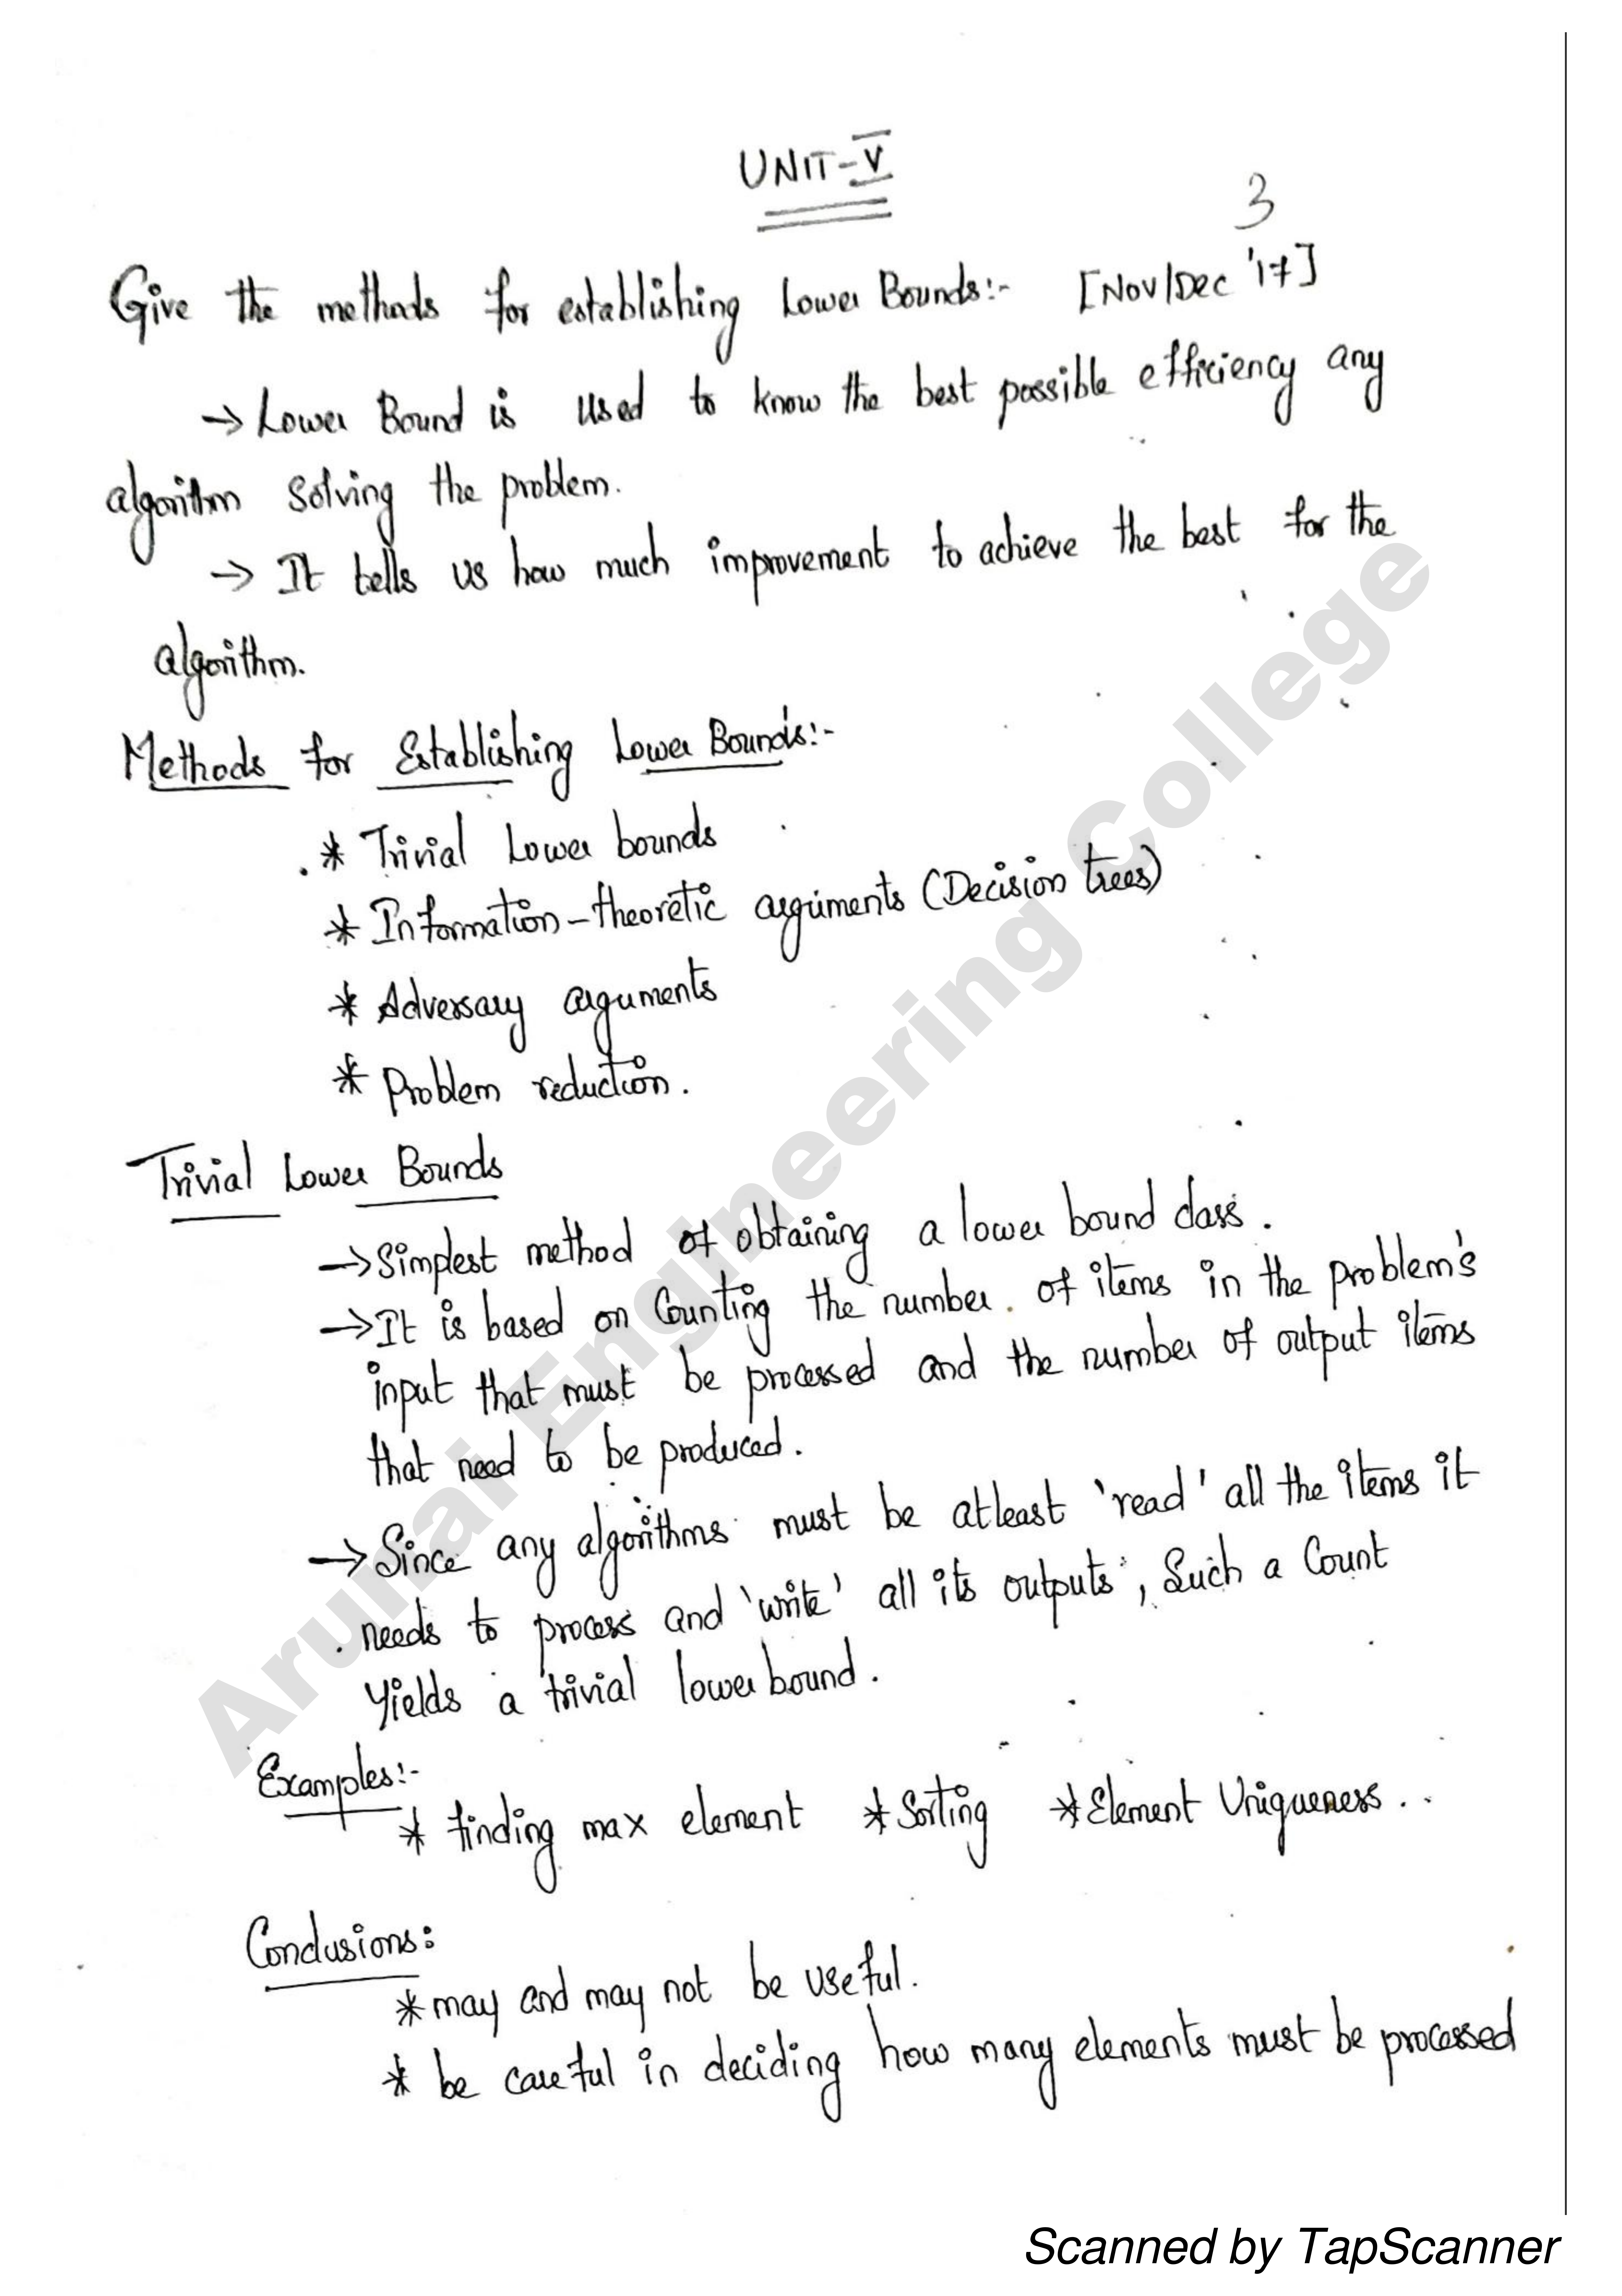 UNIT-V
3
Give the methods for establishing Lower Bounds:- [Nov/Dec '17]
→ Lower Bound is used to know the best possible efficiency any
algorithm solving the problem.
→ It tells us how much improvement to achieve the best for the
algorithm.
Methods for Establishing Lower Bounds:-
* Trivial Lower bounds
* Information-theoretic arguments (Decision trees)
* Adversary arguments
* Problem reduction.
Trivial Lower Bounds
→ Simplest method of obtaining a lower bound class.
→ It is based on Counting the number of items in the problem's
input that must be processed and the number of output items
that need to be produced.
→ Since any algorithms must be atleast 'read' all the items it
needs to process and 'write' all its outputs, Such a Count
yields a trivial lower bound.
Examples:-
* finding max element * Sorting * Element Uniqueness..
Conclusions:
* may and may not be useful.
* be careful in deciding how many elements must be processed
Arunai Engineering College
Scanned by TapScanner